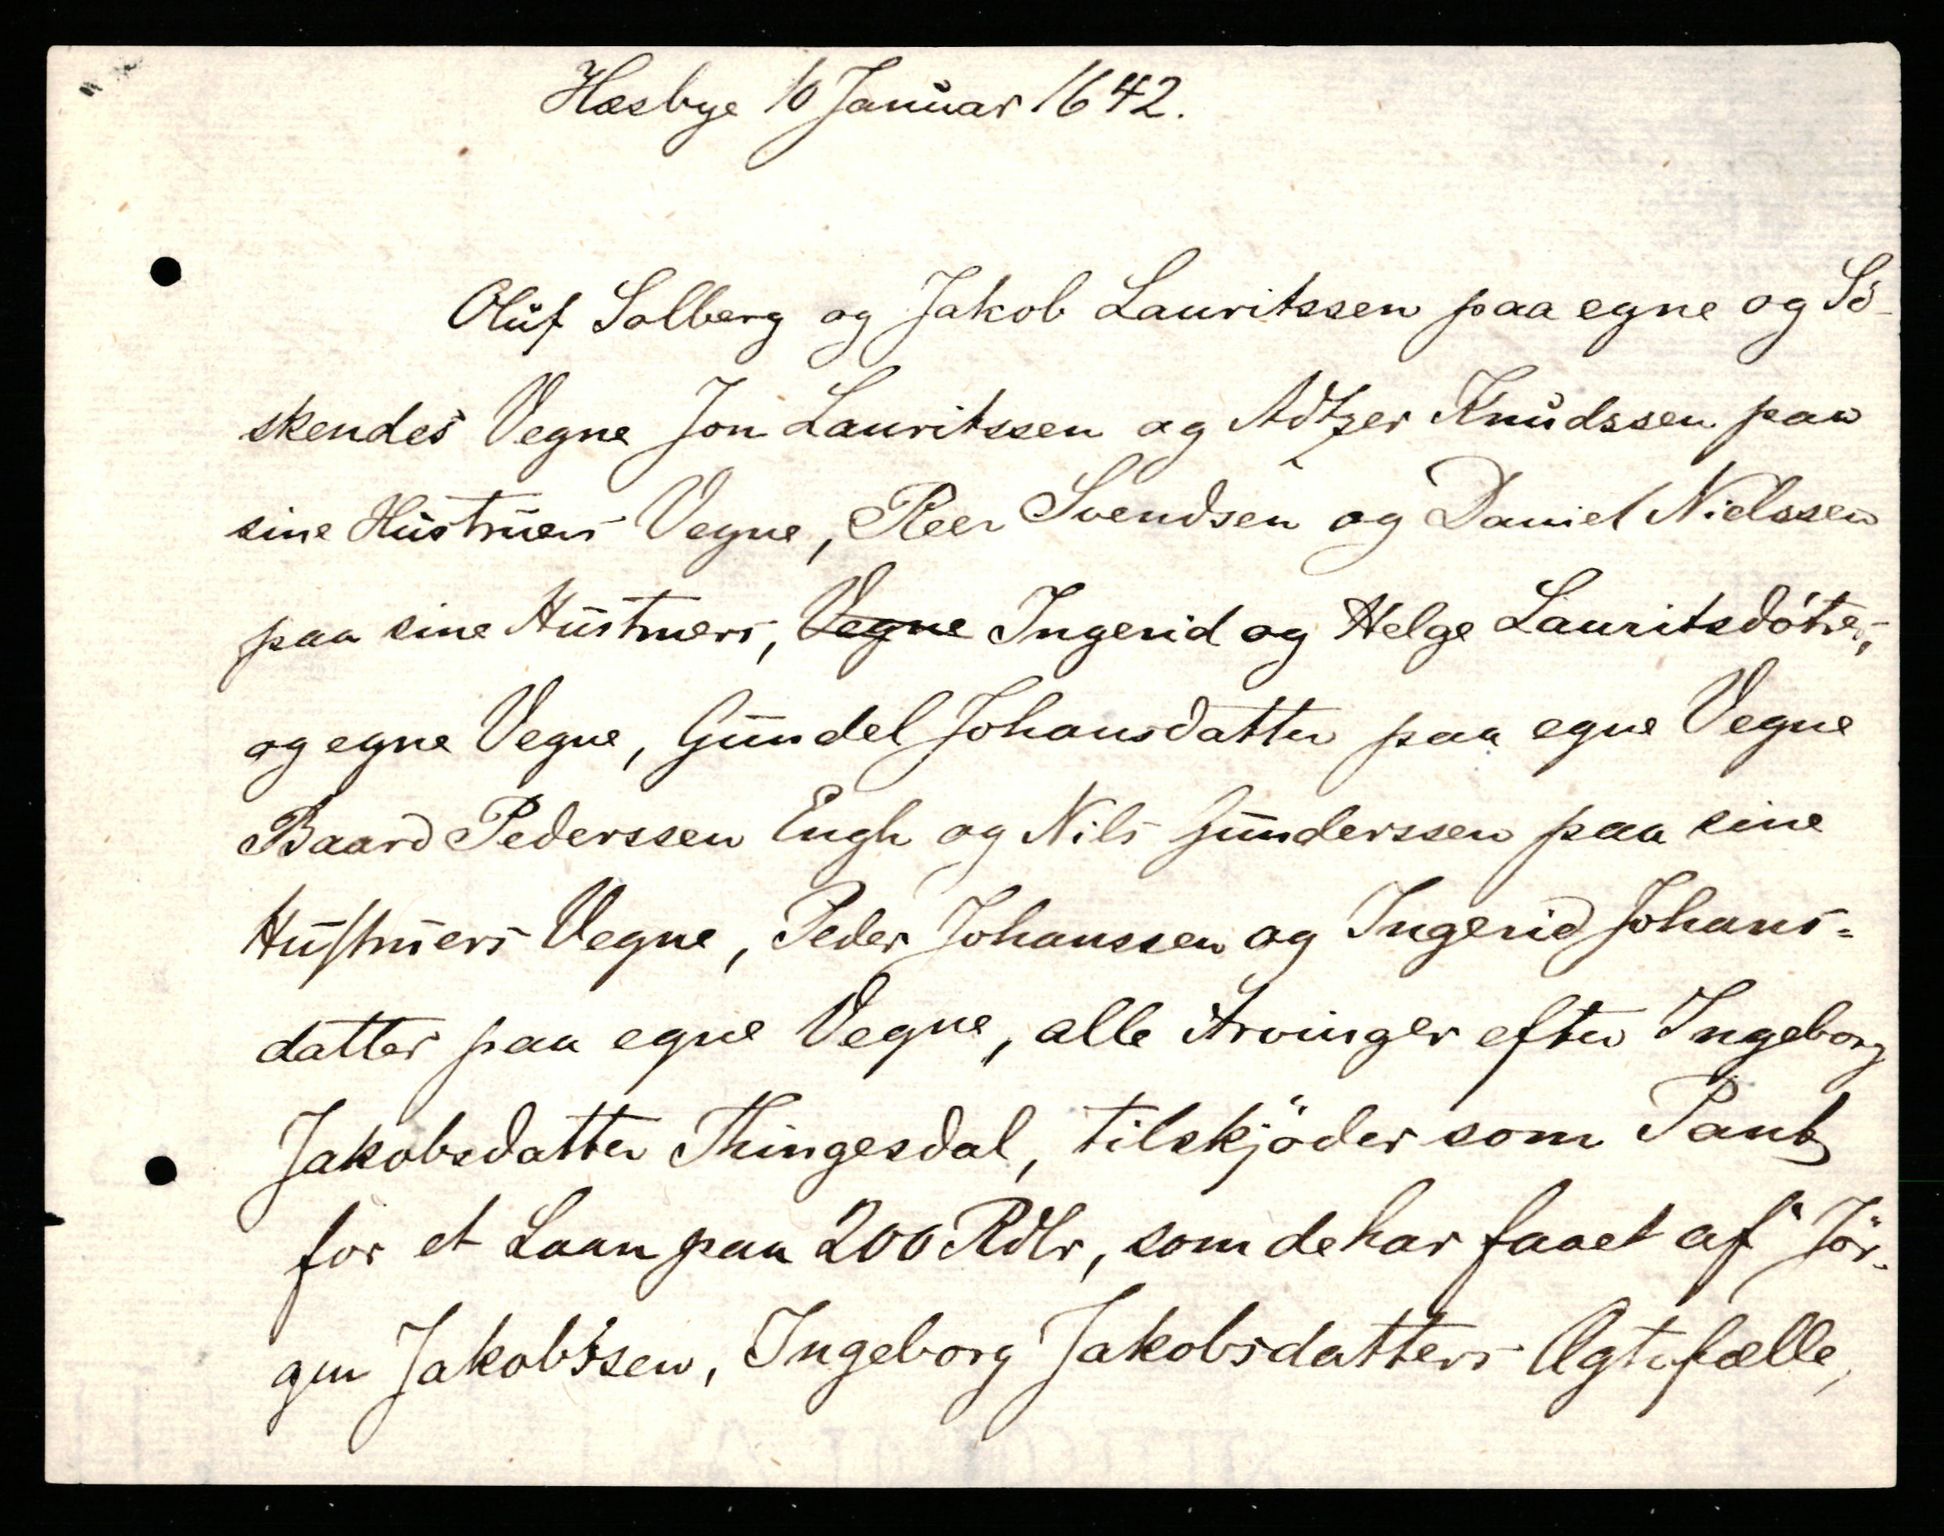 Hæsbye 10 Januar 1642.
Oluf Solberg og Jakob Lauritssen paa egne og Sö-
skendes Vegne Jon Lauritssen og Adtzer Knudssen paa
sine Hustruers Vegne, Peer Svendsen og Daniel Nielssen
paa sine Hustruers, Vegne Ingerid og Helge Lauritsdötre,
og egne Vegne, Gundel Johansdatter paa egne Vegne
Baard Pederssen Engh og Nils Gunderssen paa sine
Hustruers Vegne, Peder Johanssen og Ingerid Johans=
datter paa egne Vegne, alle Arvinger efter Ingeborg
Jakobsdatter Thingesdal, tilskjöder som Pant
for et Laan paa 200 Rdlr, som de har faaet af Jör-
gen Jakobssen, Ingeborg Jakobsdatters Ægtefælle,